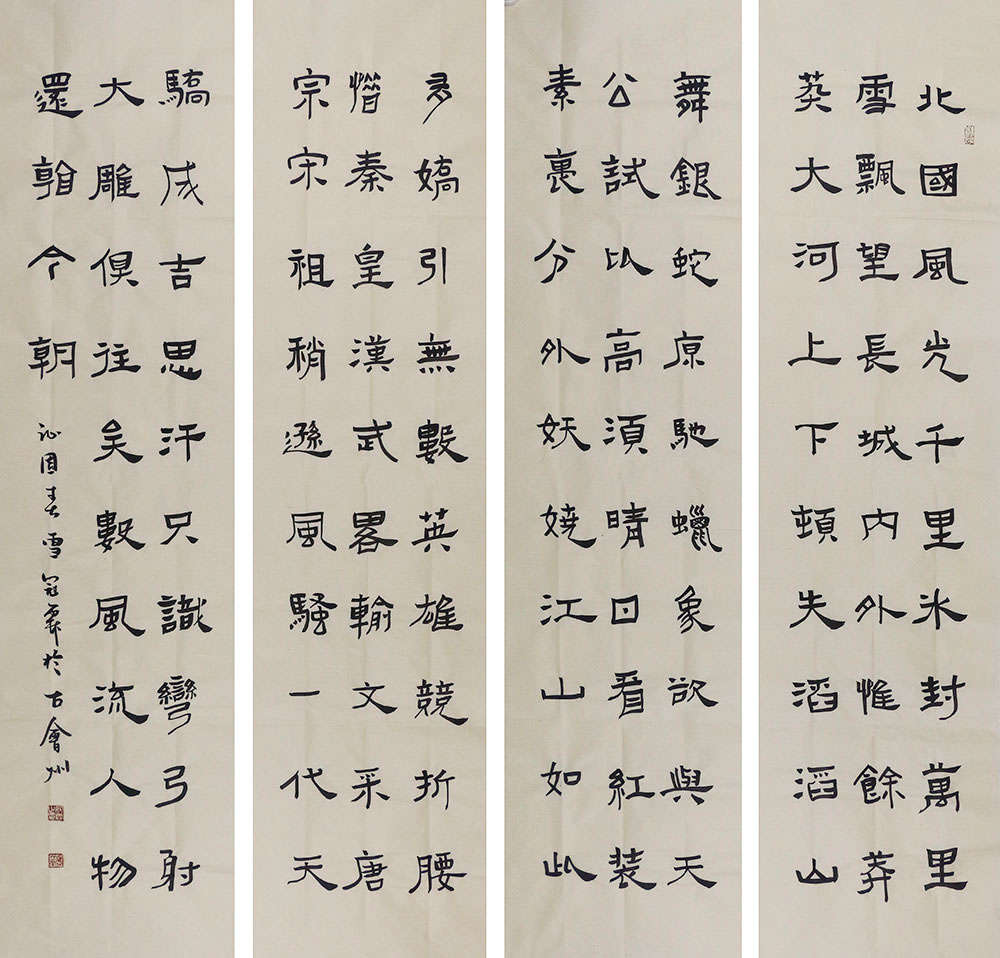 北國風光千里冰封萬里
雪飄望長城内外惟餘莽
莽大河上下頓失滔滔山
舞銀蛇原馳蠟象欲與天
公試比高須晴日看紅装
素裹分外妖嬈江山如此
多嬌引無數英雄競折腰
惜秦皇漢武畧輸文采唐
宗宋祖稍遜風騷一代天
驕成吉思汗只識彎弓射
大雕俱往矣數風流人物
還看今朝 沁園春雪 冠霖於古會州